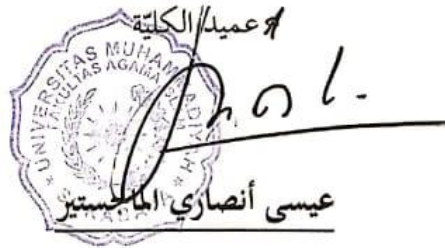 عميد الكليّة
UNIVERSITAS MUHAMMADIYAH
FAKULTAS AGAMA
عيسى أنصاري الماجستير